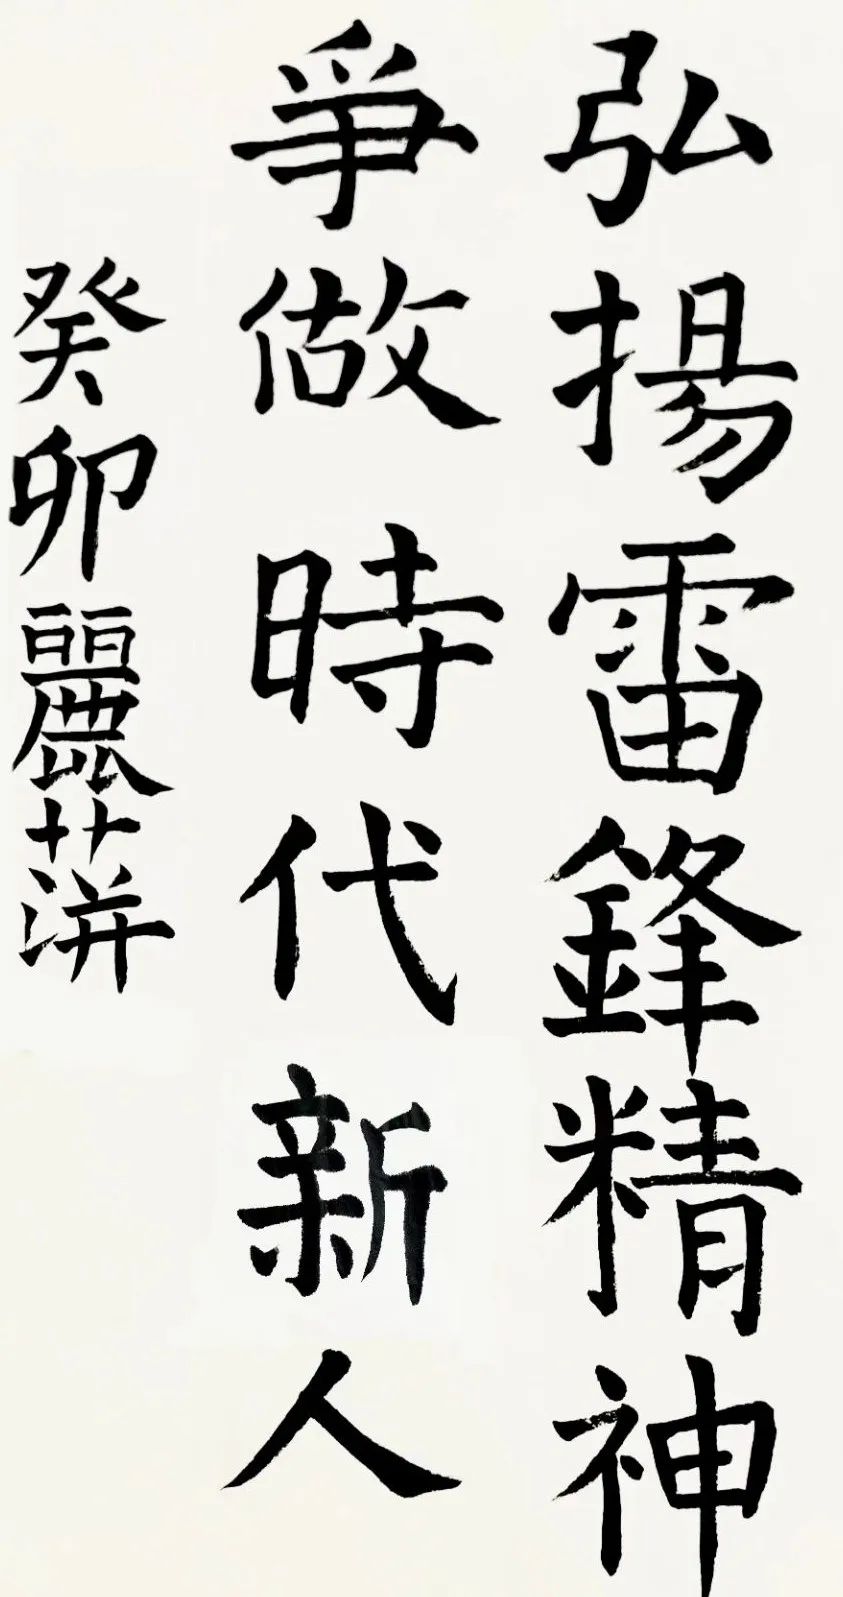 弘揚雷鋒精神
爭做時代新人
癸卯麗蓱